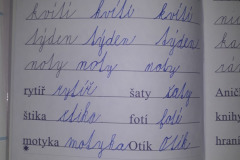 kvítí kvítí kvítí
týden týden týden
noty noty noty
rytíř rytíř šaty šaty
štika štika foťí foťí
motyka motyka Otík Otík
Anič
knihy
hrani